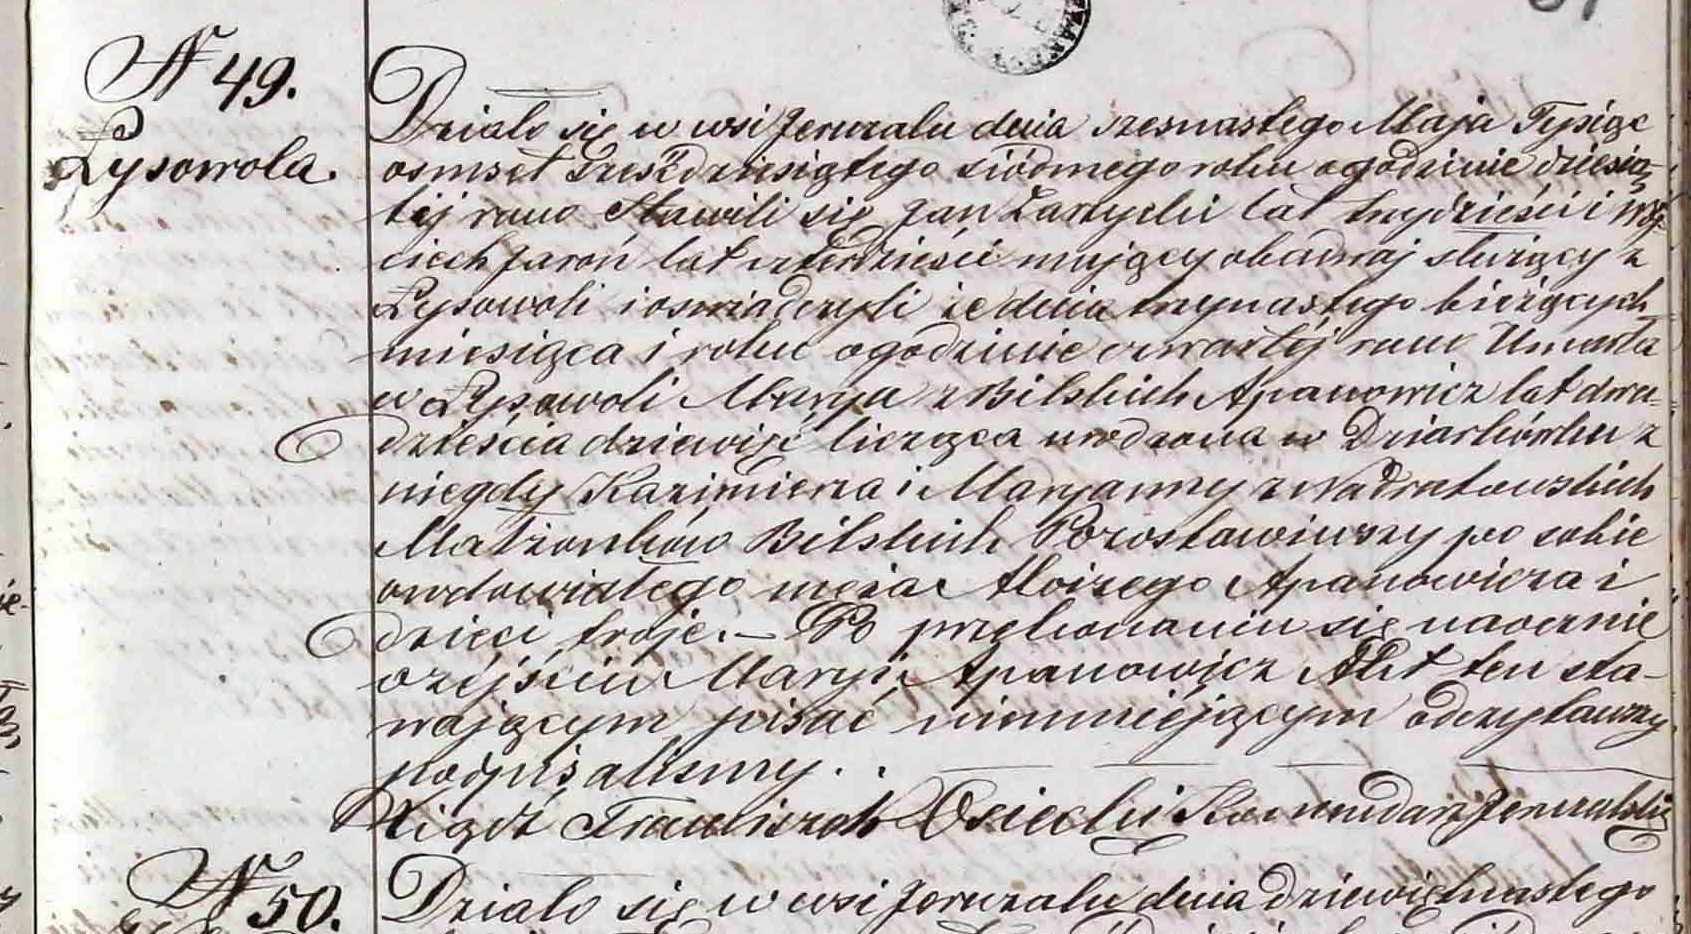 N 49.
Łysowola.
Działo się w wsi Jeruzalu dnia szesnastego Maja Tysiąc
osmset sześdziesiątego siódmego roku o godzinie dziesią-
tej rano Stawili się Jan Zarzycki lat trzydzieści i Woj-
ciech Jaroń lat czterdzieści mający obadwaj służący z
Łysowoli i oswiadczyli że dnia trzynastego bieżących
miesiąca i roku o godzinie czwartéj rano Umarła
w Łysowoli Marya z Bilskich Apanowicz lat dwa-
dzieścia dziewięć licząca urodzona w Dziarkówku z
niegdy Kazimierza i Maryanny z Nadratowskich
Małżonków Bilskich Pozostawiwszy po sobie
owdowiałego męża Aloizego Apanowicza i
dzieci troje. — Po przekonaniu się naocznie
o zéjściu Maryi Apanowicz Akt ten sta-
wającym pisać nieumiejącym odczytawszy
podpisalismy.
Xiądz Franciszek Osiecki Komendarz Jeruzalski
N 50.
Działo się w wsi Jeruzalu dnia dziewiętnastego